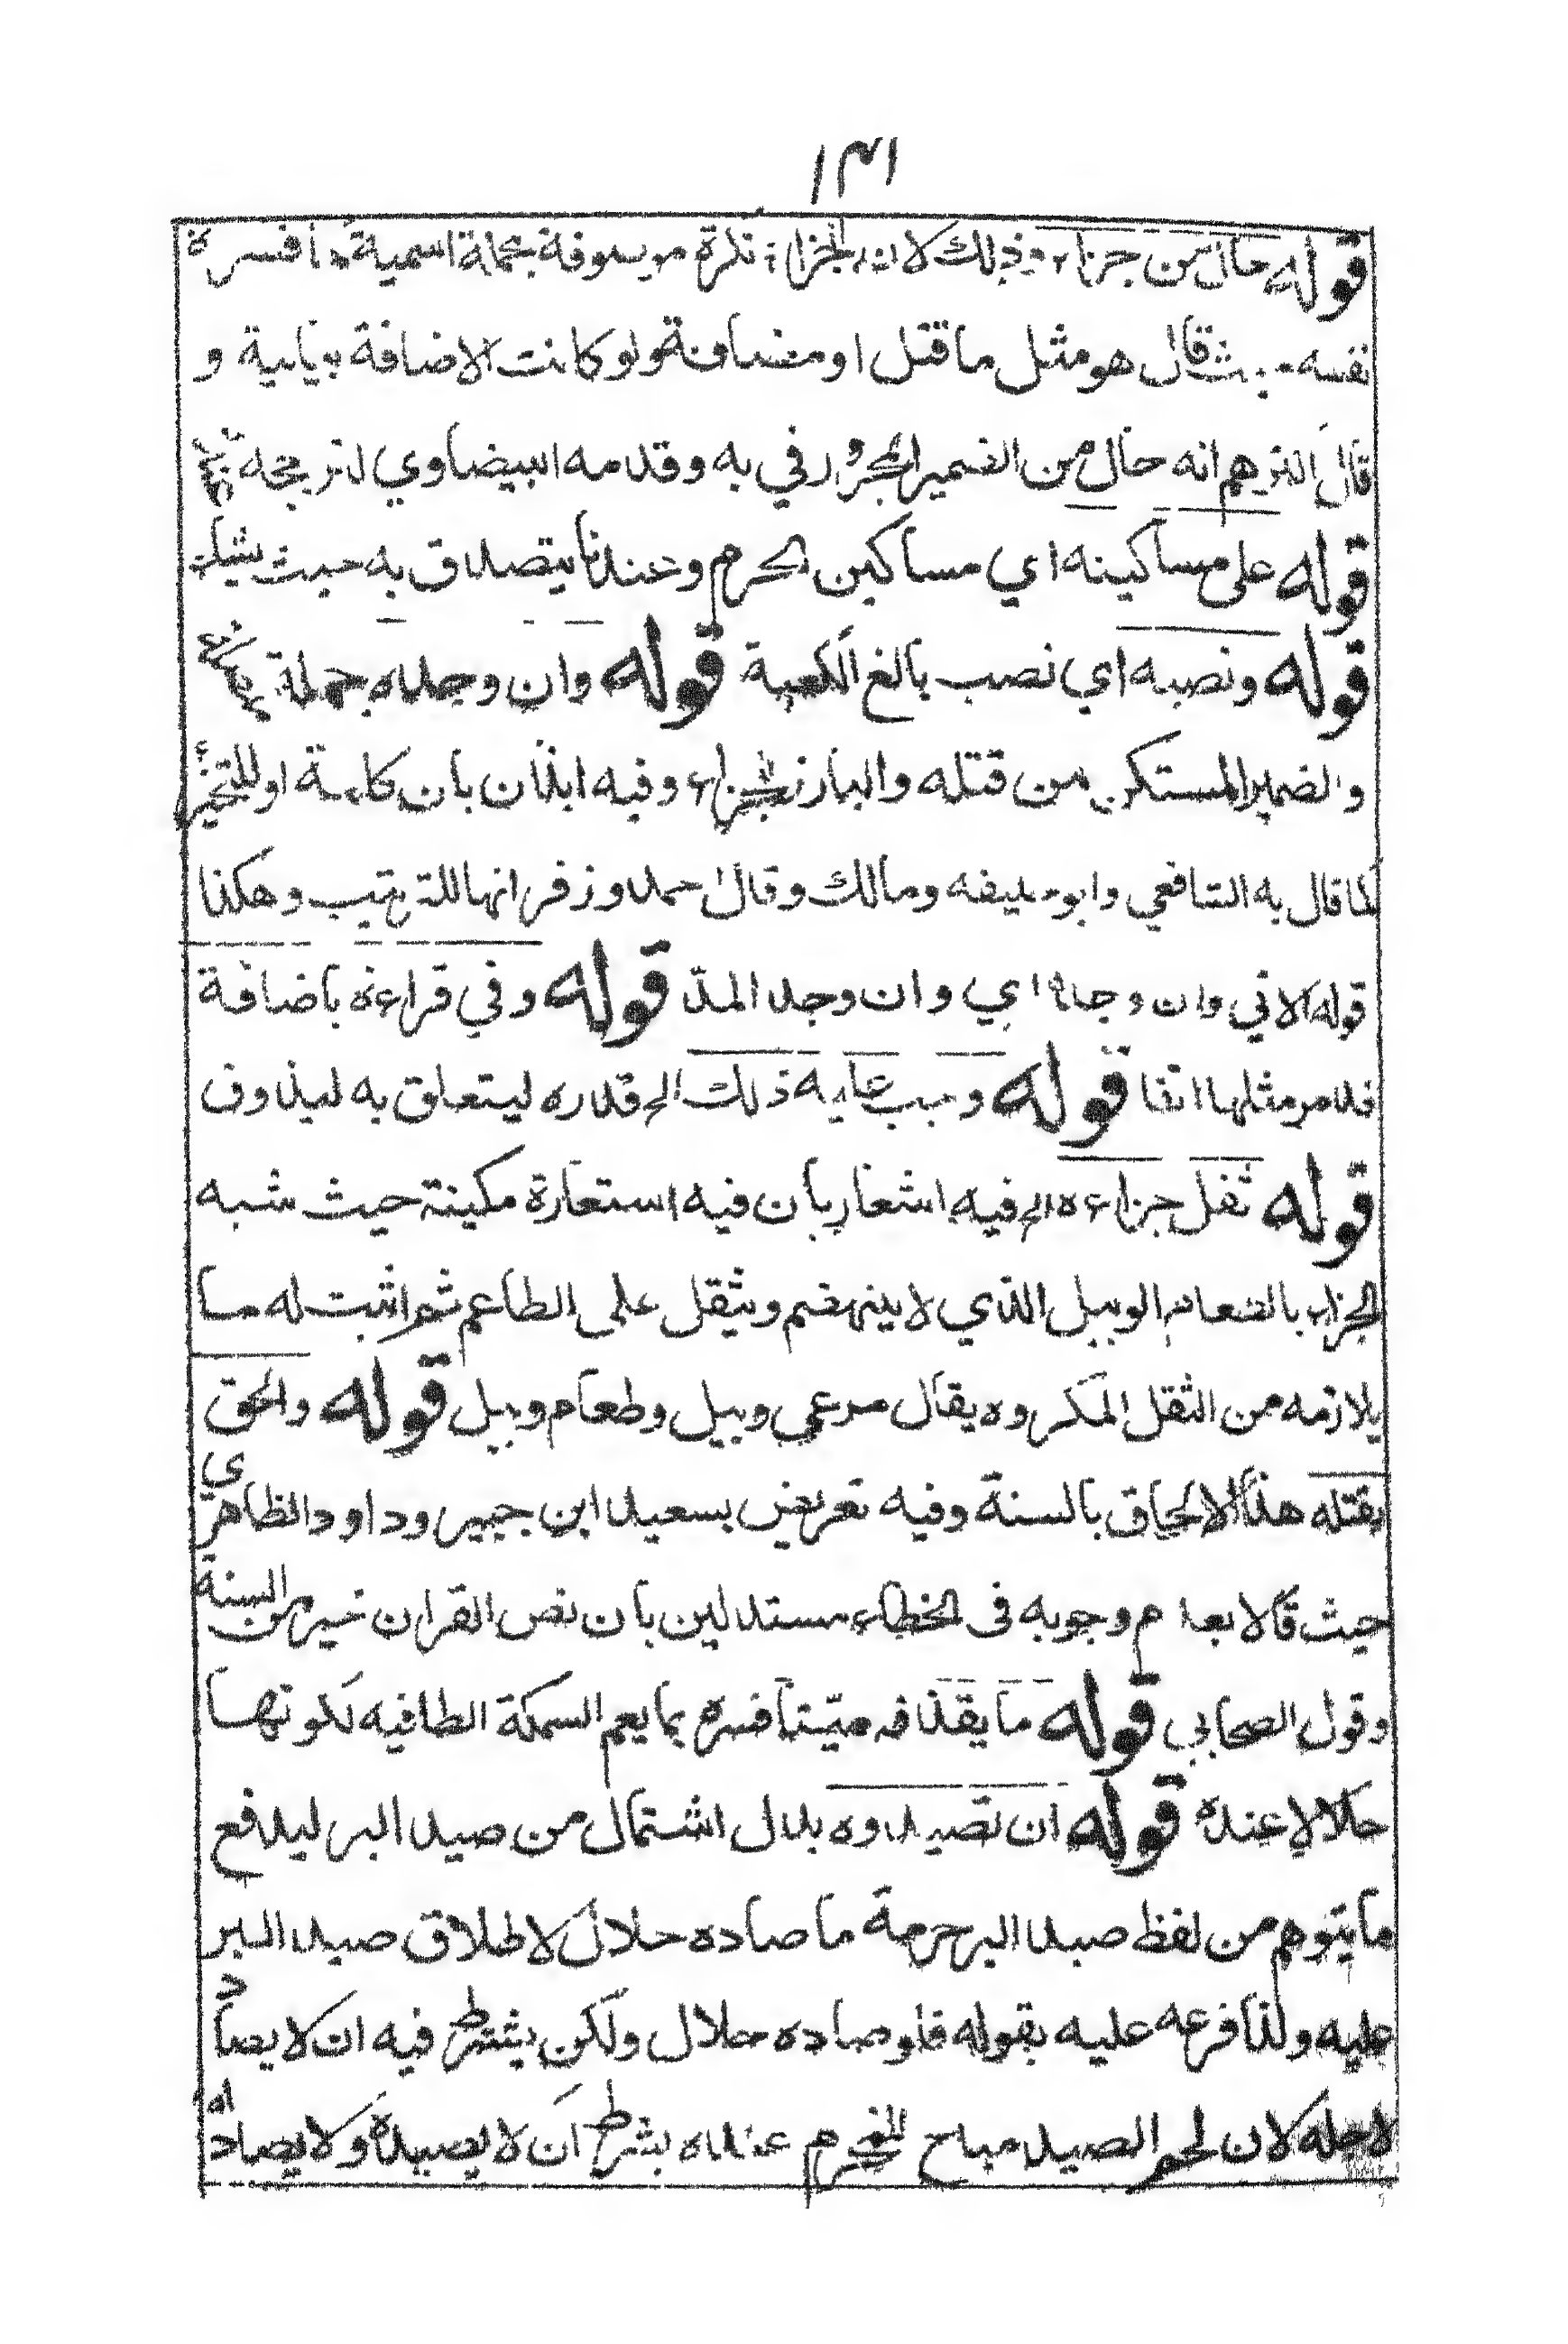 ١٣١
قوله حال من جزاء وذلك لان الجزاء نكرة موصوفة بجملة اسمية كما فسره
نفسه حيث قال هو مثل ما قتل او مضافة ولو كانت الاضافة بيانية و
قال اكثرهم انه حال من الضمير المجرور في به وقدمه البيضاوي لترجحه
قوله على مساكينه اي مساكين الحرم وعندنا يتصدق به حيث يشاء
قوله ونصبه اي نصب بالغ الكعبة قوله وان وجده جملة
والضمير المستكن من قتله والبارز للجزاء وفيه ايذان بان كلمة او للتخيير
كما قال به الشافعي وابو حنيفه ومالك وقال احمد وزفر انها للترتيب وهكذا
قوله الاتي وان وجده اي وان وجد المدّ قوله وفي قراءة باضافة
قد مر مثلها انفا قوله وجب عليه ذلك الخ قدره ليتعلق به ليذوق
قوله ثقل جزاءه الخ فيه اشعار بان فيه استعارة مكينة حيث شبه
الجزاء بالطعام الوبيل الذي لا ينهضم ويثقل على الطاعم ثم اثبت له ما
يلازمه من الثقل المكروه يقال مرعى وبيل وطعام وبيل قوله والحق
بقتله هذا الالحاق بالسنة وفيه تعريض بسعيد ابن جبير وداود الظاهري
حيث قالا بعدم وجوبه في الخطاء مستدلين بان نص القران خير من السنة
وقول الصحابي قوله ما يقذفه ميّتا فسره بما يعم السمكة الطافيه لكونها
حلالا عنده قوله ان تصيدوه بدال اشتمال من صيد البر ليدفع
ما يتوهم من لفظ صيد البر حرمة ما صاده حلال لاطلاق صيد البر
عليه ولذا فرعه عليه بقوله فلو صاده حلال ولكن يشترط فيه ان لا يصاد
لاجله لان لحم الصيد مباح للمحرم عنده بشرط ان لا يصيده ولا يصاد له